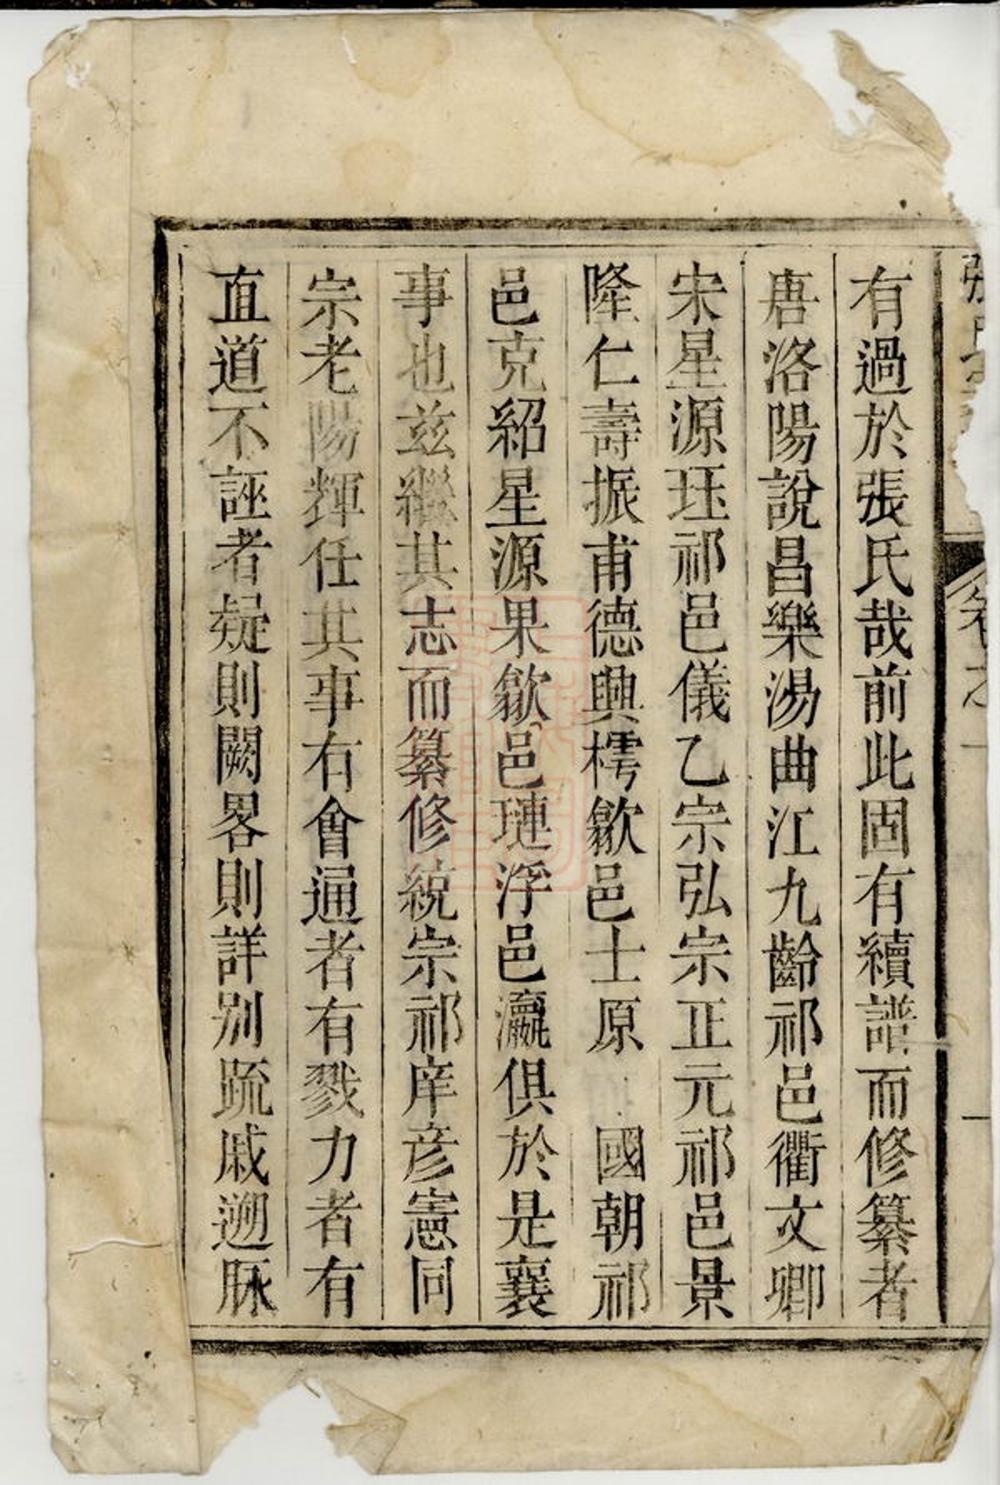 張氏
卷之一
一
有過於張氏哉前此固有續譜而修纂者
唐洛陽說昌樂湯曲江九齡祁邑衢文卿
宋星源珏祁邑儀乙宗弘宗正元祁邑景
隆仁壽振甫德興樗歙邑士原 國朝祁
邑克紹星源果歙邑璉浮邑瀛俱於是襄
事也兹繼其志而纂修統宗祁庠彦憲同
宗老陽輝任其事有會通者有戮力者有
直道不誣者疑則闕畧則詳别䟽戚遡脉